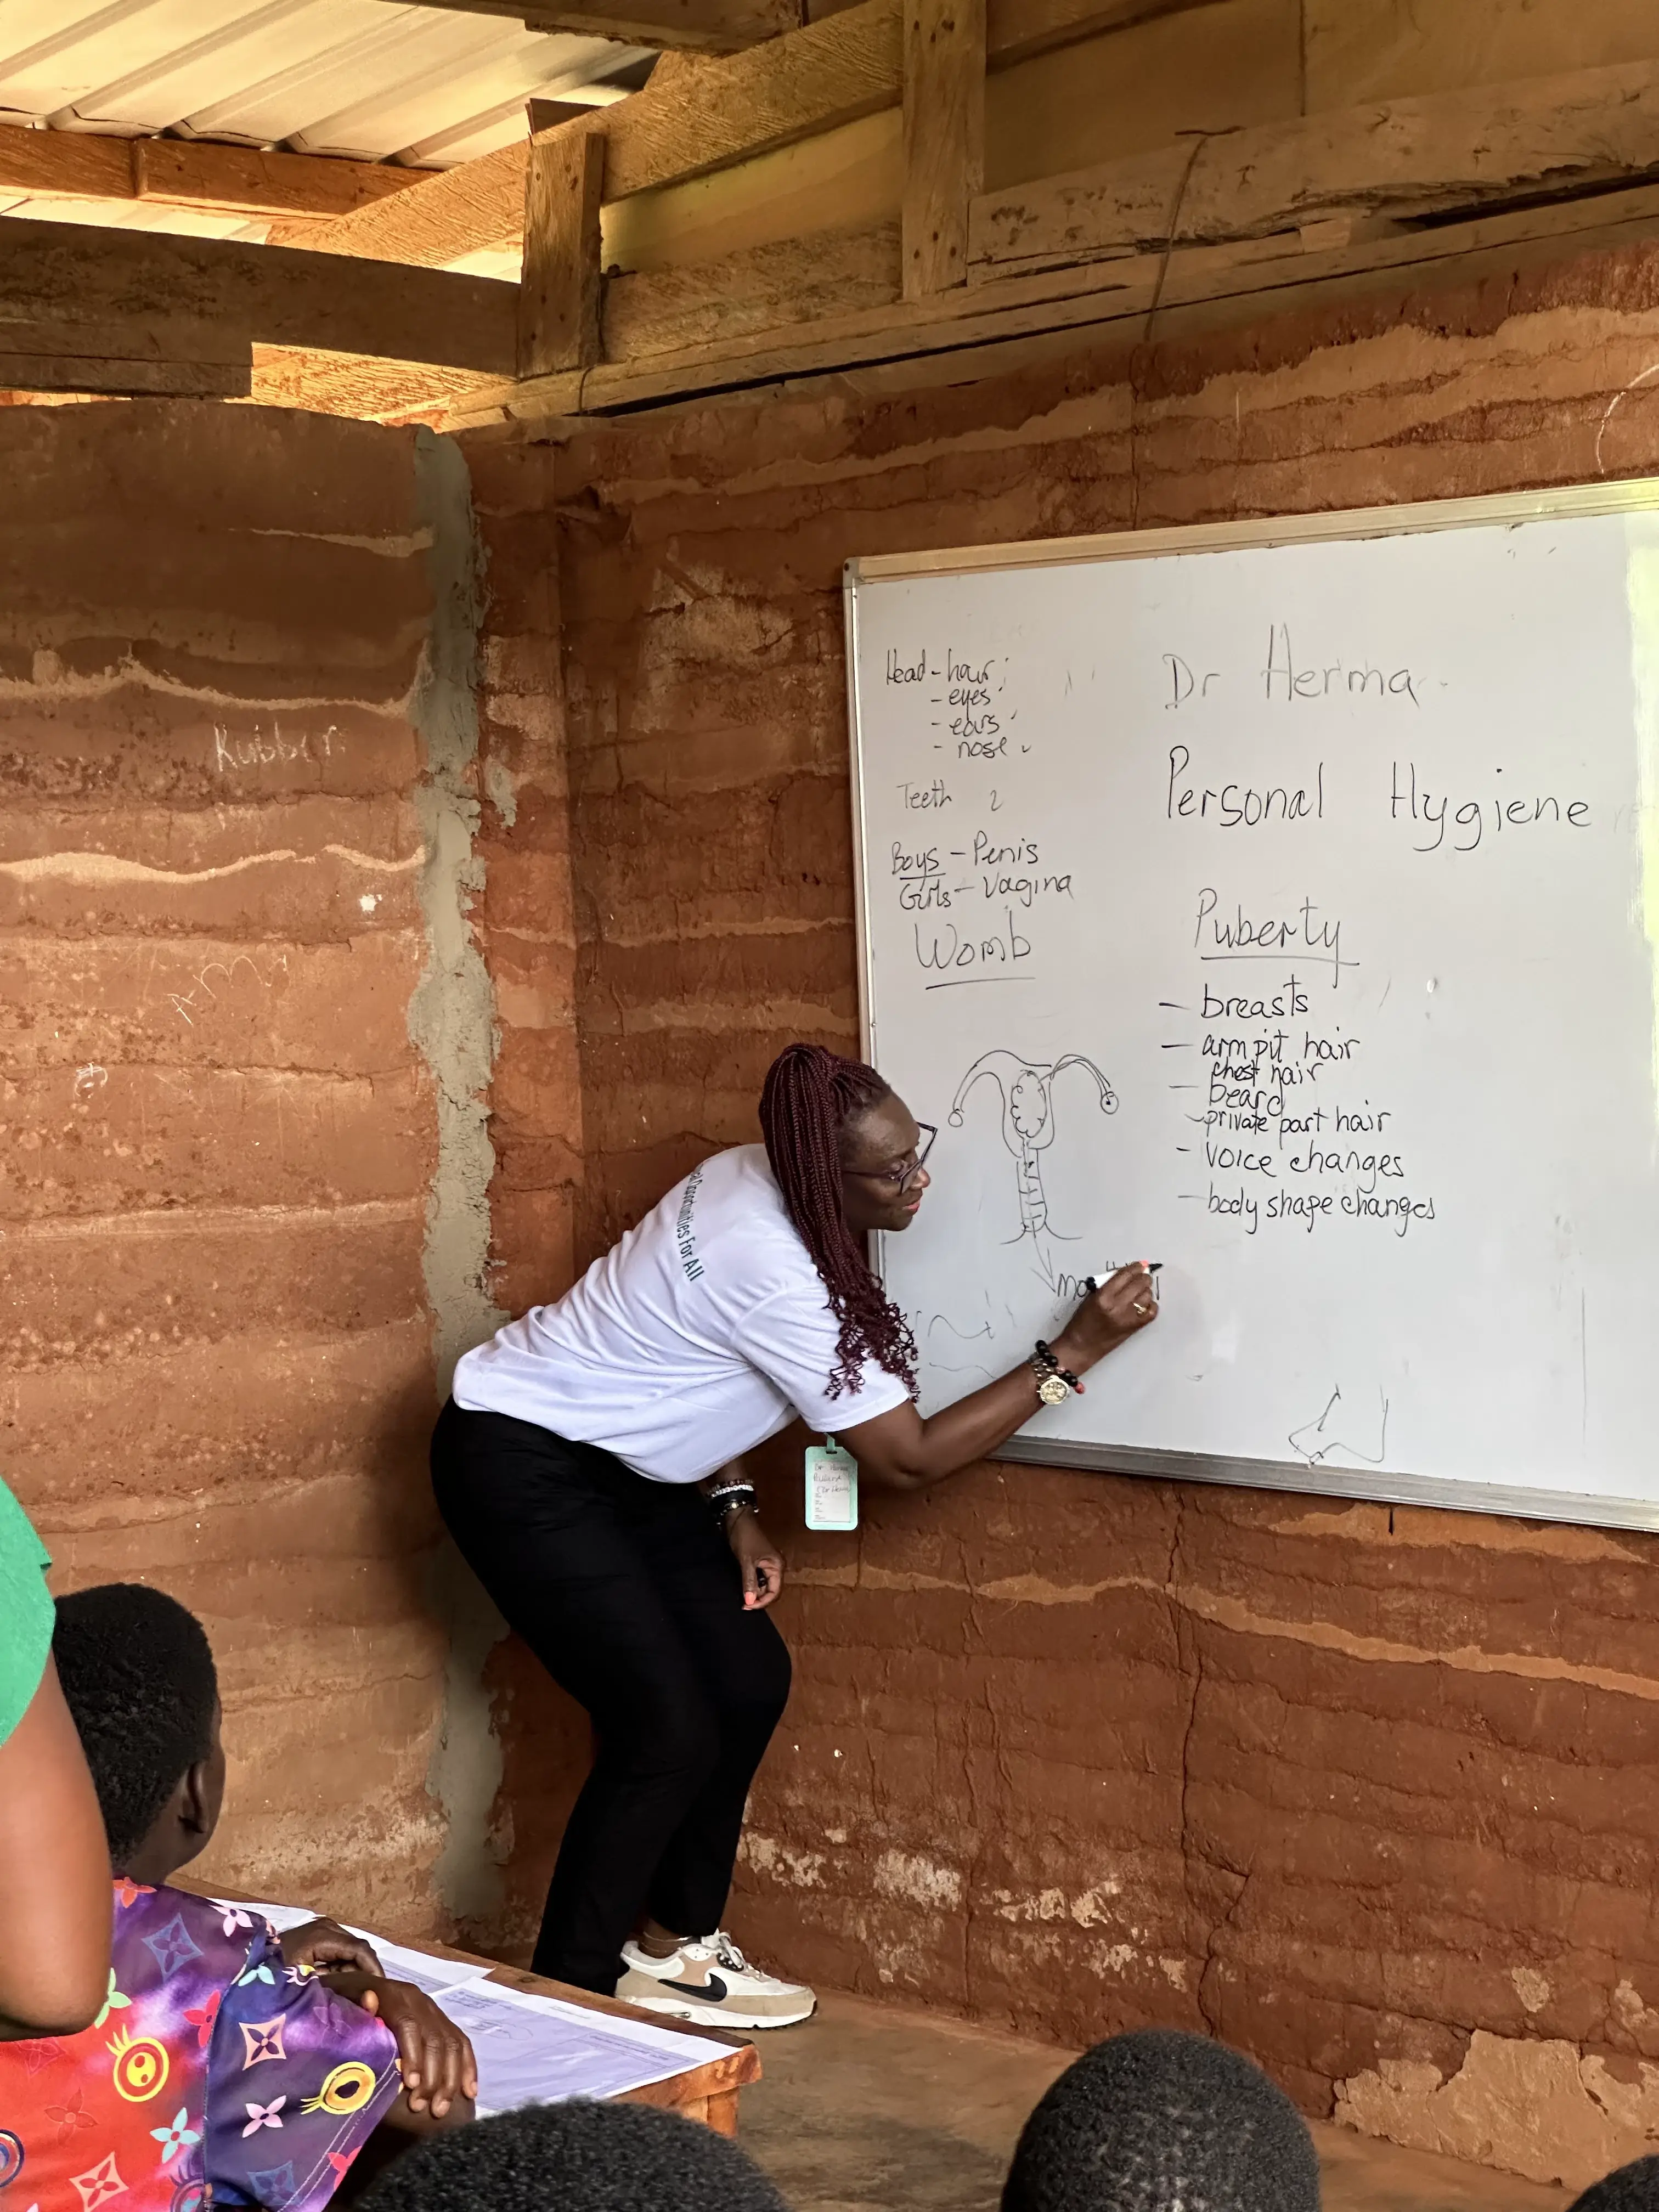 Head - hair
- eyes
- ears
- nose
Teeth
Boys - Penis
Girls - Vagina
Womb
Dr Herma
Personal Hygiene
Puberty
- breasts
- arm pit hair
chest hair
- beard
- private part hair
- voice changes
- body shape changes
Rubber
Opportunities For All
Dr Herma